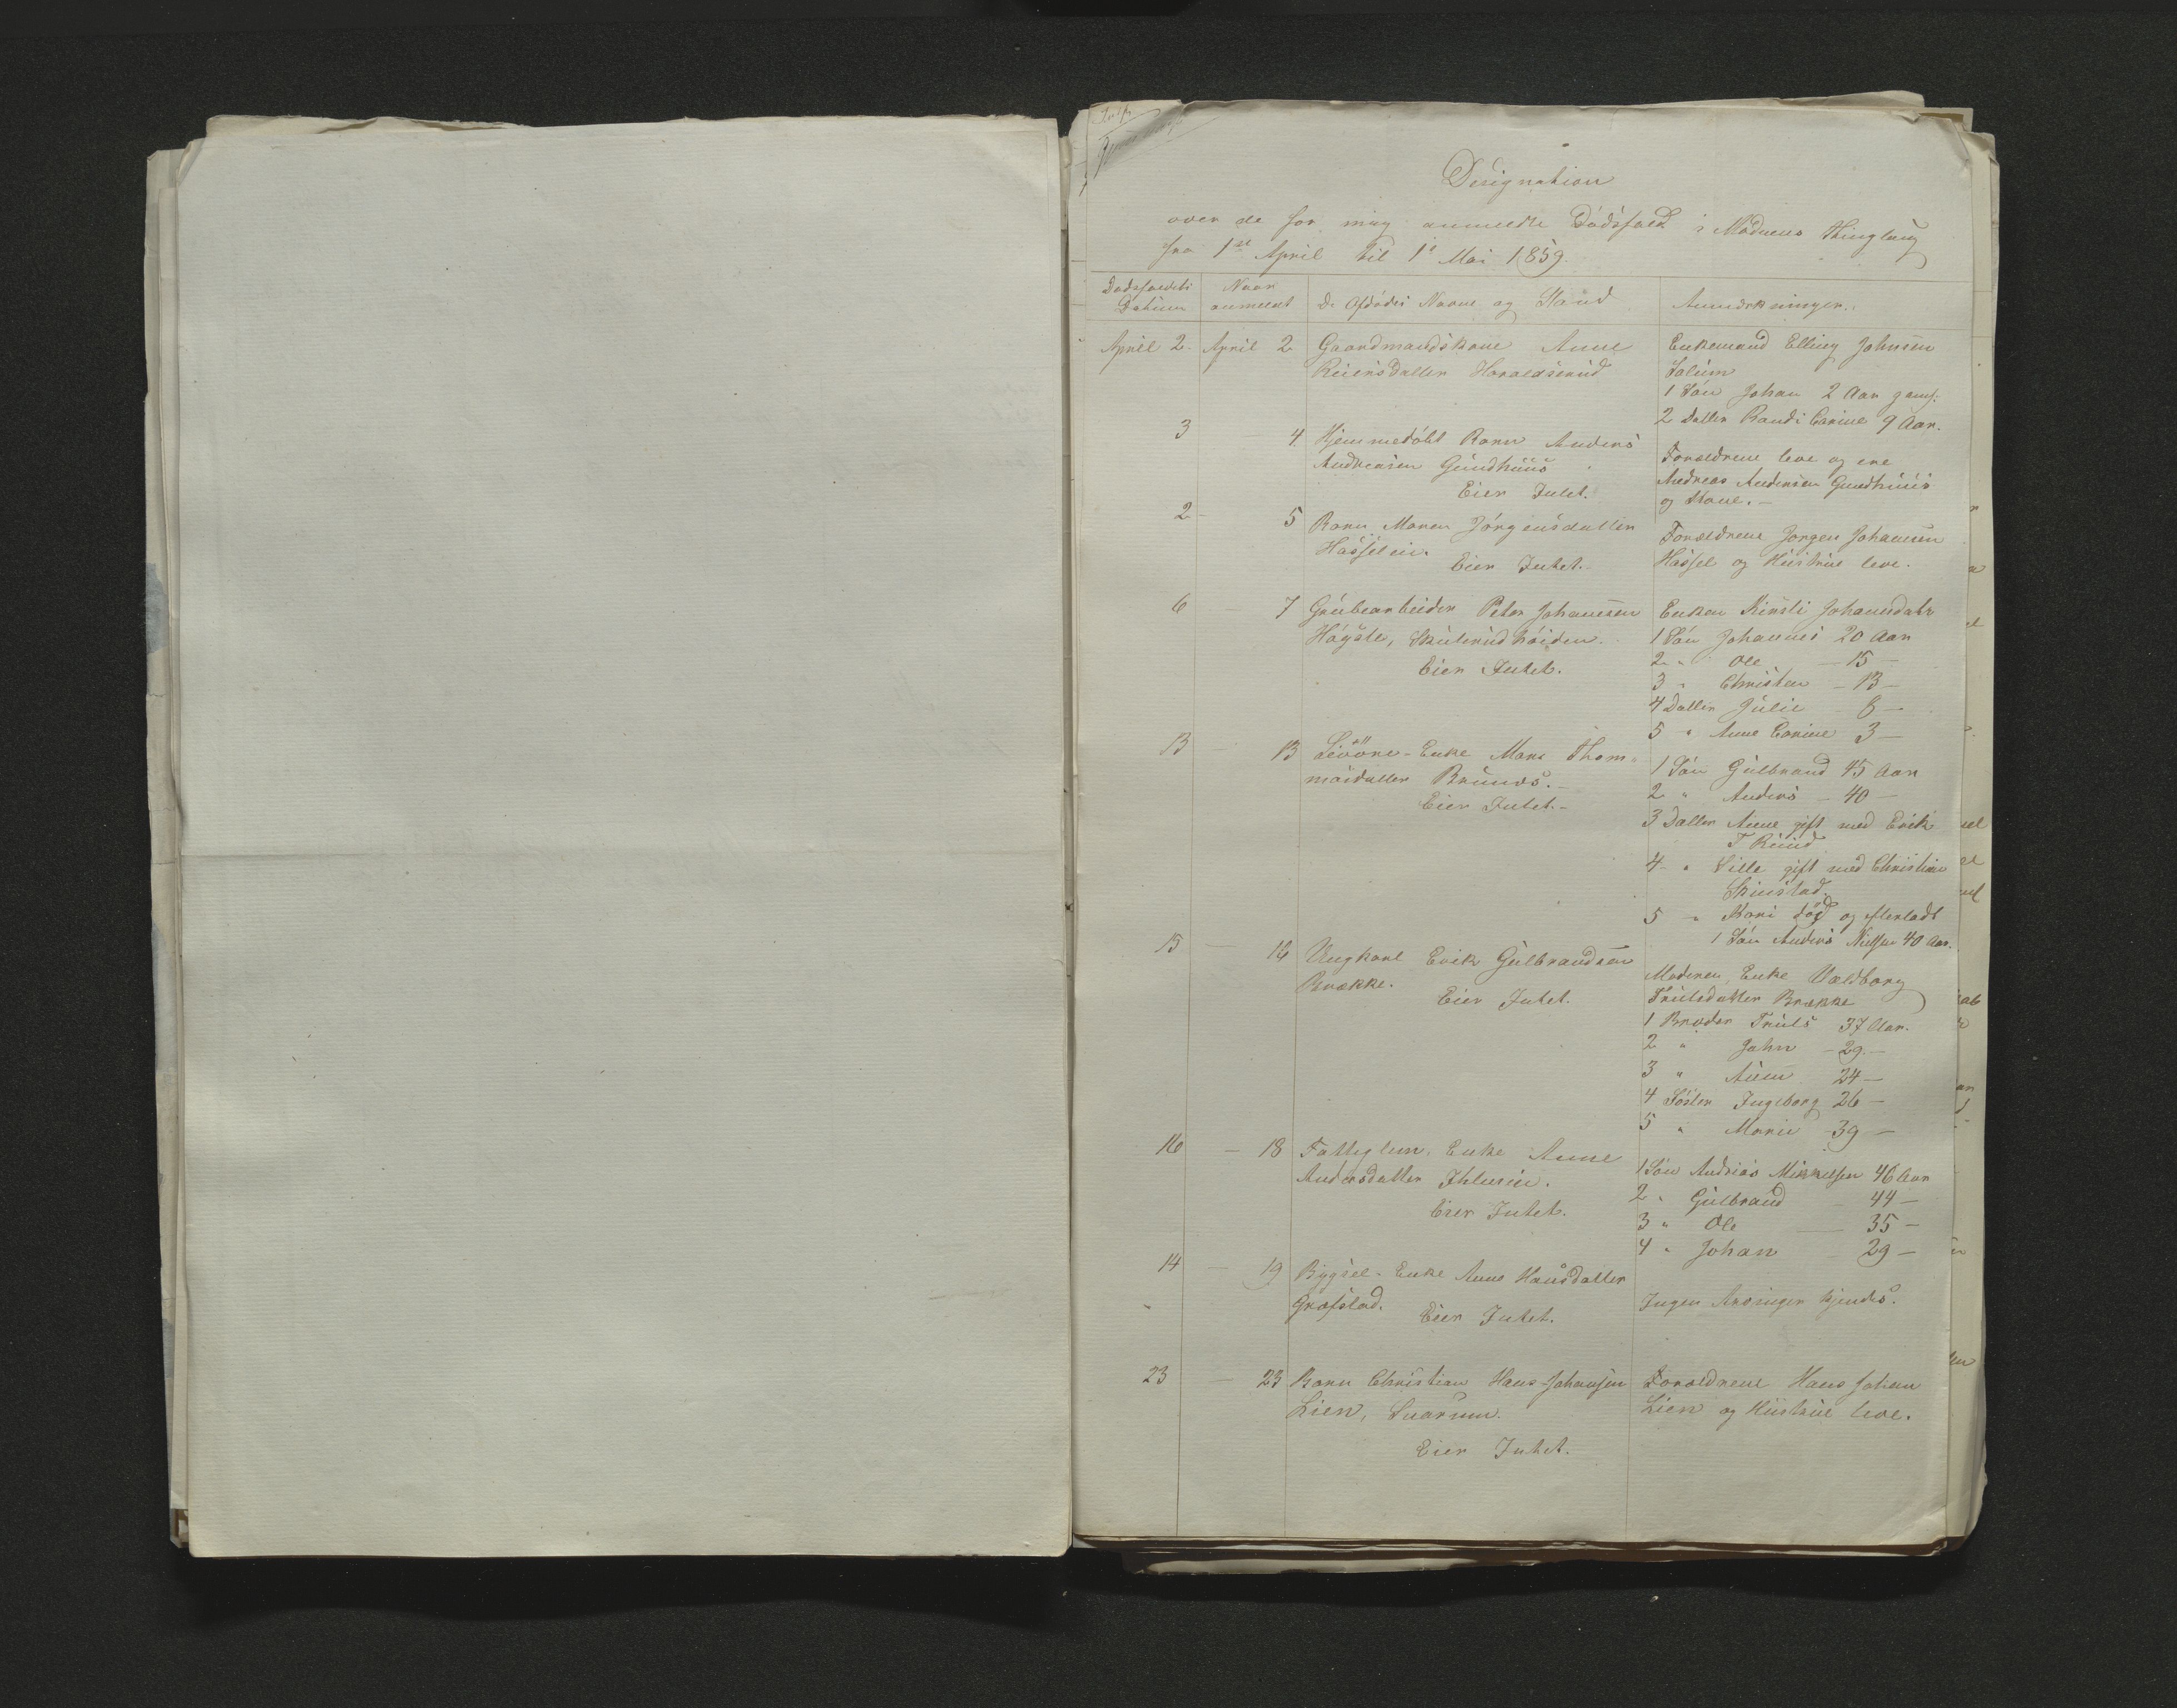 Designation
over de for mig anmeldte Dødsfald i Modums Thinglaug
fra 1ste April til 1ste Mai 1859.
Dødsfaldets Datum
Naar anmeldt
De Afdødes Navne og Stand
Anmærkninger.
April 2 - April 2 Gaardmandskone Anne
Reiersdatter Haraldserud
Enkemand Elling Johnsen
1 Søn Johan 2 Aar gaml.
2 Datter Randi Karine 9 Aar.
3 - 4 Hjemmedøbt Barn Anders
Andreasen Gundhuus
Eier Intet.
Forældrene leve og ere
Andreas Andersen Gundhuus
og Kone. -
2 - 5 Barn Maren Jørgensdatter
Hasseleie.
Eier Intet.
Forældrene Jørgen Johannesen
Hassel og Hustrue leve.
6 7 Grubearbeider Peter Johannesen
Høgste, Skuterudhøiden.
Eier Intet.
Enken Kirsti Johannesdatr
1 Søn Johannes 20 Aar
2 " Ole - 15 -
3 " Christen - 13 -
4 Datter Julie - 8 -
5 " Anne Karine 3 -
13 - 13 Enke Mari Thom-
møsdatter Brunæs. -
Eier Intet. -
1 Søn Gulbrand 45 Aar
2 " Anders - 40 -
3 Datter Anne gift med Erik
T Ruud
4 " Sille gift med Christian
Skinstad
5 " Kari død og efterladt
1 Søn Anders Nielsen 40 Aar.
15 - 16 Ungkarl Erik Gulbrandsen
Brække.
Eier Intet.
Moderen, Enke Valdborg
Trulsdatter Brække
1 Broder Truls 37 Aar.
2 " John - 29 -
3 " 24 -
4 Søster Ingeborg 26 -
5 " Marie 39 -
16 - 18 Fattiglem, Enke Anne
Andersdatter Ihleeie.
Eier Intet.
1 Søn Andreas Mikkelsen 46 Aar
2 " Gulbrand - 44 -
3 " Ole - 35 -
4 " Johan - 29 -
14 - 19 Bygsel-Enke Anne Hansdatter
Græfstad.
Eier Intet.
Ingen Arvinger kjendes.
23 - 23 Barn Christian Hans-Johansen
Lien, Snarum.
Eier Intet.
Forældrene Hans Johan
Lien og Hustrue leve.